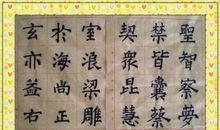 聖智察夢
禁皆囊蔡
契眾昆慧
室浪梁雕
於海尚正
玄亦益右